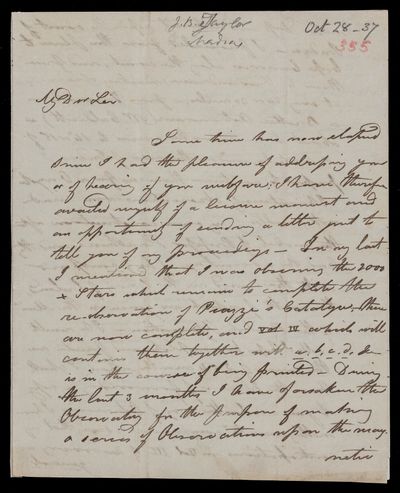 J. B. Taylor
Madras
Oct 28 - 37
355
My Dear Sir
Some time has now elapsed
since I had the pleasure of addressing you
or of hearing of your welfare; I have therefore
availed myself of a leisure moment and
an opportunity of sending a letter just to
tell you of my proceedings - In my last
I mentioned that I was observing the 2000
Stars which remain to complete the
re-observation of Piazzi's Catalogue, these
are now complete, and Vol IV which will
contain them together with a, b, c, d, &c
is in the course of being printed - During
the last 3 months I have forsaken the
Observatory for the purpose of making
a series of Observations upon the mag
netic